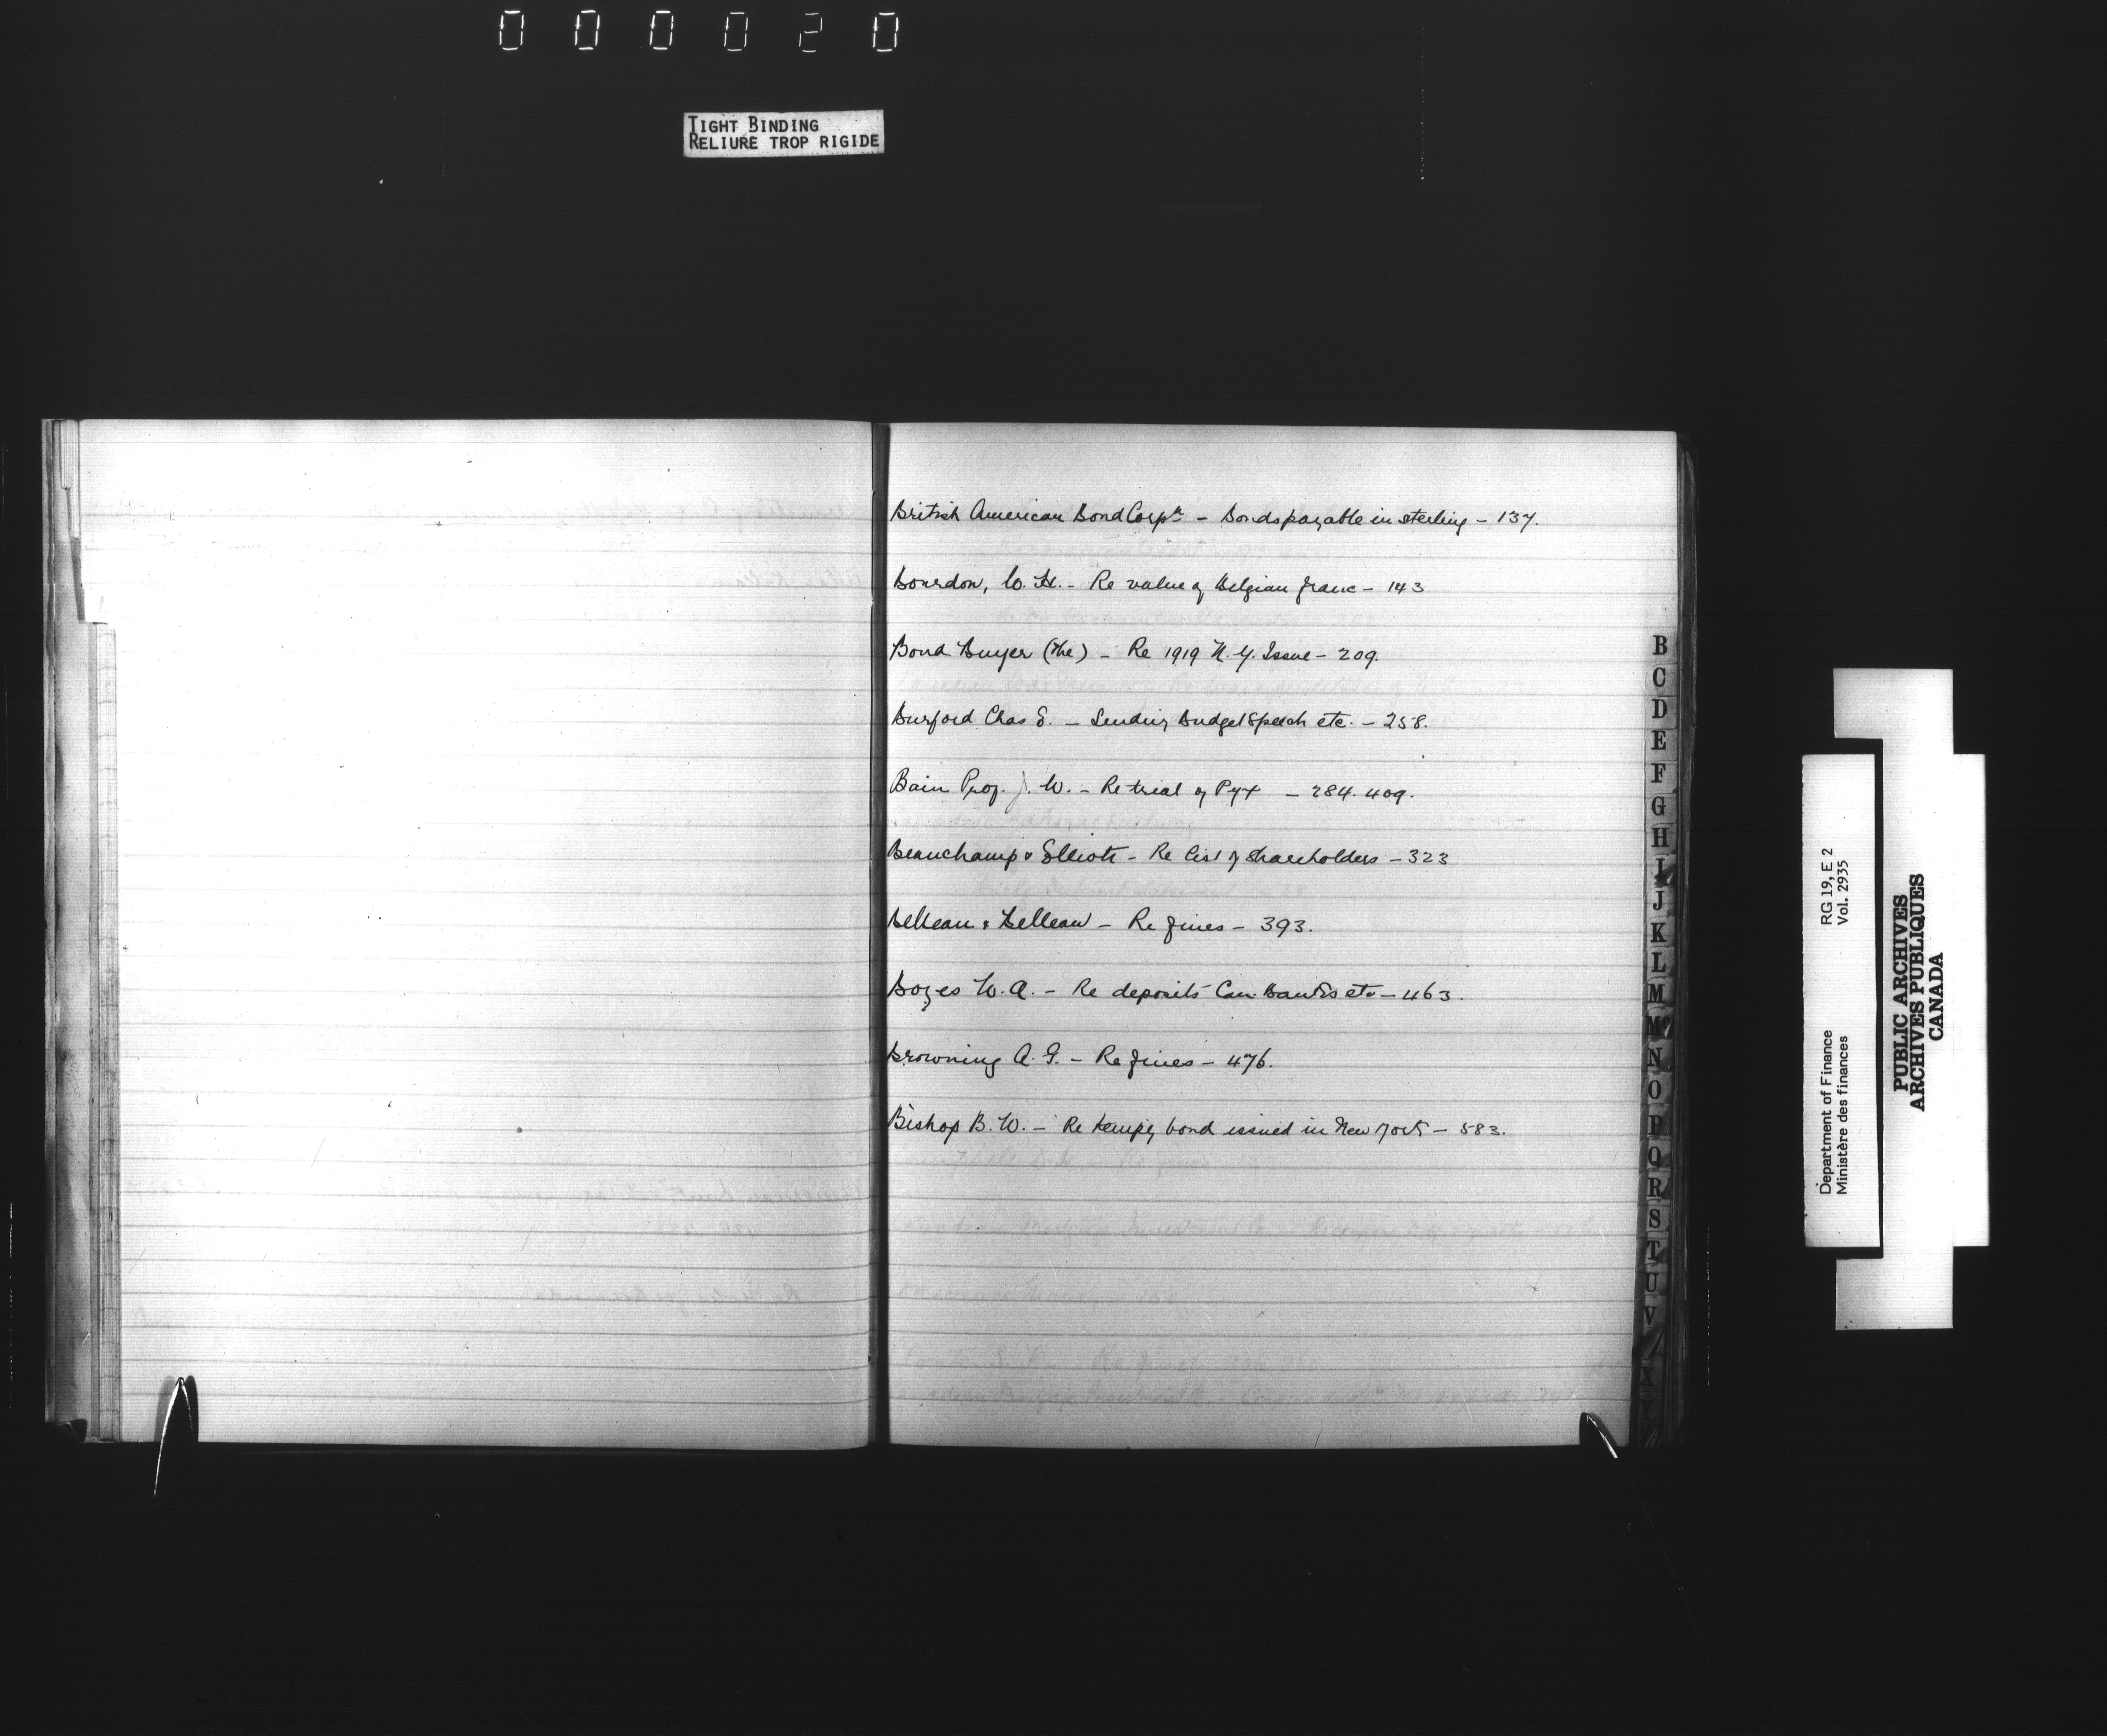 000020
TIGHT BINDING
RELIURE TROP RIGIDE
British American Bond Corpn - Bonds payable in sterling - 137.
Bourdon, W. H. - Re value of Belgian franc - 143
Bond Buyer (The) - Re 1919 N.Y. Issue - 209.
Burford Chas S. - Sending Budget Speech etc. - 258.
Bain Prof. J. W. - Re trial of Pyx - 284. 409.
Beauchamp & Elliott - Re list of shareholders - 323
Belleau & Belleau - Re fines - 393.
Boyes W. A. - Re deposits Can. Banks etc - 463.
Browning A. G. - Re fines - 476.
Bishop B. W. - Re tempy bond issued in New York - 583.
B
C
D
E
F
G
H
I
J
K
L
M
Mc
N
O
P
Q
R
S
T
U
V
X
Department of Finance RG 19, E 2
Ministère des finances Vol. 2935
PUBLIC ARCHIVES
ARCHIVES PUBLIQUES
CANADA